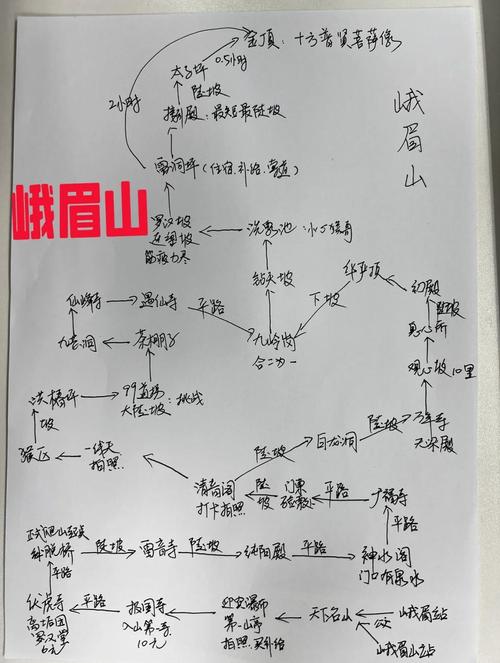 金顶：十方普贤菩萨像
太子坪
0.5小时
陡坡
2小时
接引殿：最短最陡坡
峨眉山
雷洞坪（住宿.补给.索道）
峨眉山
罗汉坡
筋疲力尽
洗象池：小心猴子
钻天坡
华严顶
初殿
陡坡
息心所
下坡
仙峰寺
遇仙寺
平路
九岭岗
合二为一
九老洞
茶棚子
观心坡
10里
洪椿坪
99道拐
大陡坡：挑战
坡
猴区
一线天
拍照
陡坡
白龙洞
陡坡
万年寺
无梁殿
清音阁
打卡拍照
陡坡
平路
广福寺
平路
解脱桥
陡坡
雷音寺
陡坡
纯阳殿
平路
神水阁
门口有泉水
平路
伏虎寺
罗汉堂
6元
平路
报国寺
入山第一寺
10元
迎宾瀑布
拍照.买补给
天下名山
峨眉站
峨眉山站